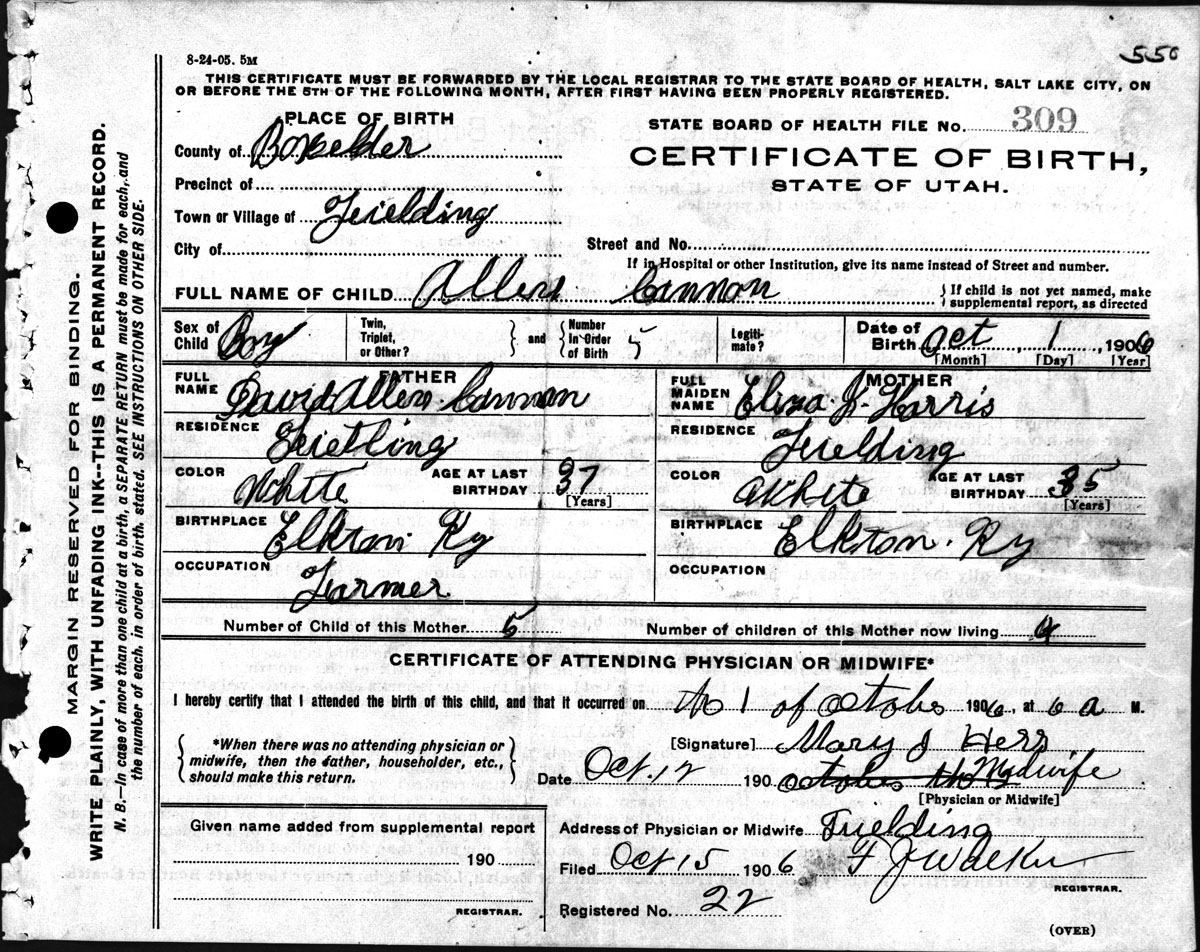 8-24-05. 5M
550
THIS CERTIFICATE MUST BE FORWARDED BY THE LOCAL REGISTRAR TO THE STATE BOARD OF HEALTH, SALT LAKE CITY, ON
OR BEFORE THE 5TH OF THE FOLLOWING MONTH, AFTER FIRST HAVING BEEN PROPERLY REGISTERED.
PLACE OF BIRTH
STATE BOARD OF HEALTH FILE No. 309
County of Boxelder
CERTIFICATE OF BIRTH,
STATE OF UTAH.
Precinct of
Town or Village of Feielding
City of
Street and No.
If in Hospital or other Institution, give its name instead of Street and number.
FULL NAME OF CHILD Allen Cannon
If child is not yet named, make
supplemental report, as directed
Sex of Child Boy
Twin, Triplet, or Other?
and Number In Order of Birth 5
Legiti-mate?
Date of Birth Oct 1, 1906
[Month] [Day] [Year]
FATHER
FULL NAME David Allen Cannon
RESIDENCE Feietling
COLOR White
AGE AT LAST BIRTHDAY 37
[Years]
BIRTHPLACE Elkton Ky
OCCUPATION Farmer
MOTHER
FULL MAIDEN NAME Eliza J. Harris
RESIDENCE Feielding
COLOR White
AGE AT LAST BIRTHDAY 35
[Years]
BIRTHPLACE Elkton. Ky
OCCUPATION
Number of Child of this Mother 5
Number of children of this Mother now living 4
CERTIFICATE OF ATTENDING PHYSICIAN OR MIDWIFE*
I hereby certify that I attended the birth of this child, and that it occurred on 1 of October 1906, at 6 a M.
*When there was no attending physician or
midwife, then the father, householder, etc.,
should make this return.
[Signature] Mary J Herr
Date Oct. 12 190 Midwife
[Physician or Midwife]
Given name added from supplemental report
190
REGISTRAR.
Address of Physician or Midwife Fielding
Filed Oct 15 1906 F J Walker
REGISTRAR.
Registered No. 22
(OVER)
MARGIN RESERVED FOR BINDING.
WRITE PLAINLY, WITH UNFADING INK--THIS IS A PERMANENT RECORD.
N. B.—In case of more than one child at a birth, a SEPARATE RETURN must be made for each, and
the number of each, in order of birth, stated. SEE INSTRUCTIONS ON OTHER SIDE.